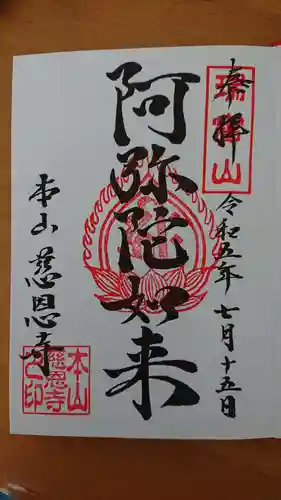 奉拝
令和五年七月十五日
阿弥陀如来
本山 慈恩寺
本山
慈恩寺
之印